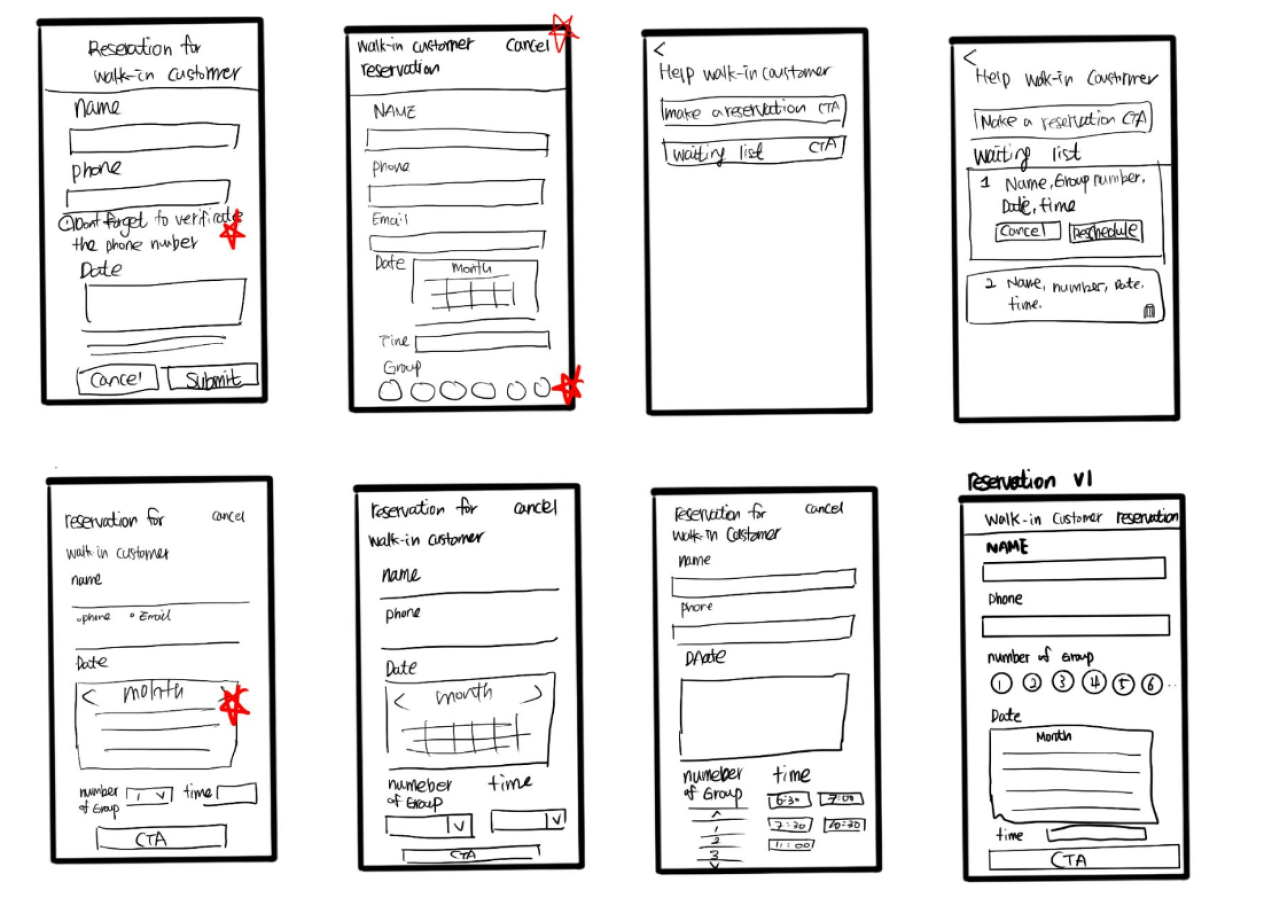 Reseration for
walk-in customer
name
phone
Dont forget to verificate
the phone number
Date
Cancel Submit
walk-in customer Cancel
reservation
NAME
phone
Email
Date Month
Time
Group
<
Help walk-in coustomer
make a reservation CTA
waiting list CTA
<
Help walk-in Coustomer
Make a reservation CTA
waiting list
1 Name, Group number,
Date, time
Cancel Reschedule
2 Name, number, Date,
time.
reservation for cancel
walk-in customer
name
phone Email
Date
< month >
number time
of Group 1 v
CTA
reservation for cancel
walk-in customer
name
phone
Date
< month >
numeber time
of Group
v v
CTA
reservation for cancel
walk-in Customer
name
phone
DAate
numeber time
of Group
^ 6:30 7:00
1 7:30 10:30
2 11:00
3
v
reservation V1
walk-in Customer reservation
NAME
phone
number of Group
1 2 3 4 5 6 ..
Date
Month
time
CTA